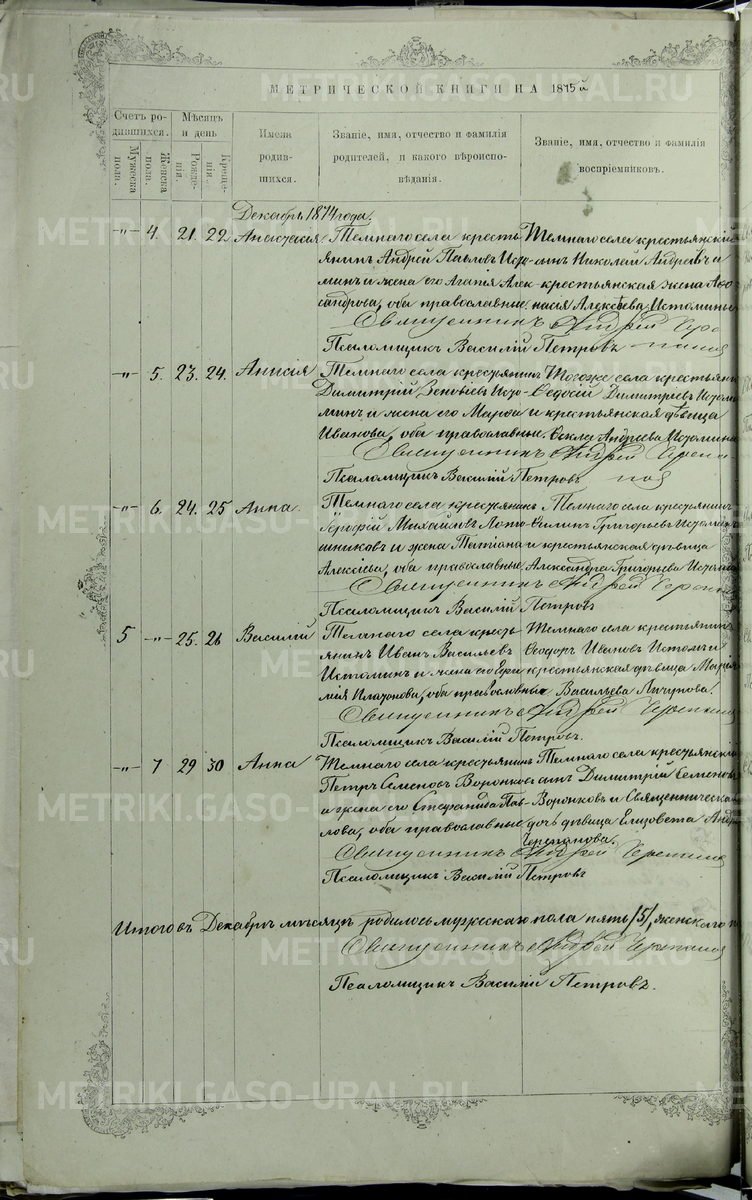 МЕТРИЧЕСКОЙ КНИГИ НА 1875 й
Счетъ ро-
дившихся.
Мужеска
пола.
Женска
пола.
Мѣсяцъ
и день
Рожде-
нія.
Креще-
нія.
Имена
родив-
шихся.
Званіе, имя, отчество и фамилія
родителей, и какого вѣроиспо-
вѣданія.
Званіе, имя, отчество и фамилія
воспріемниковъ.
Декабрь 1874 года.
-"- 4. 21. 22. Анастасія
Темнаго села кресть
янинъ Андрей Павловъ Исто-
минъ и жена его Агапія Алек-
сандрова, оба православные.
Темнаго села крестьянскій
сынъ Николай Андреевъ и
крестьянская жена Аѳо
насія Алексѣева Истомины
Священникъ Андрей Чере
панов
Псаломщикъ Василій Петровъ
-"- 5. 23. 24. Анисія
Темнаго села крестьянинъ
Димитрій Зеновіевъ Исто-
минъ и жена его Марѳа
Иванова, оба православные.
Тогоже села крестьянинъ
Ѳедосій Димитріевъ Истоми
и крестьянская дѣвица
Ѳекла Андреева Истомина
Священникъ Андрей Черепа-
нов
Псаломщикъ Василій Петровъ
-"- 6. 24. 25 Анна
Темнаго села крестьянинъ
Ерофей Михайловъ Лото-
шниковъ и жена Татіана
Алексѣева, оба православные
Темнаго села крестьянинъ
Филипъ Григорьевъ Истомин
и крестьянская дѣвица
Александра Григорьева Истомина
Священникъ Андрей Черепан
Псаломщикъ Василій Петровъ
5 -"- 25. 26 Василій
Темнаго села кресть
янинъ Иванъ Васильевъ
Истоминъ и жена его Ефи
мія Платонова, оба православные
Темнаго села крестьянинъ
Ѳеодоръ Ивановъ Истомин
крестьянская дѣвица Марія
Васильева
Священникъ Андрей Черепанов
Псаломщикъ Василій Петровъ.
-"- 7 29 30 Анна
Темнаго села крестьянинъ
Петръ Семеновъ Воронковъ
и жена его Стефанида Пав-
лова, оба православные
Темнаго села крестьянскій
сынъ Димитрій Семеновъ
Воронковъ и Священническа
дочь дѣвица Елизовета Андр
Черепанова.
Священникъ Андрей Черепанов
Псаломщикъ Василій Петровъ
Итого въ Декабрѣ мѣсяцѣ родилось мужескаго пола пять /5/, женскаго
Священникъ Андрей Черепанов
Псаломщикъ Василій Петровъ.
METRIKI.GASO-URAL.RU